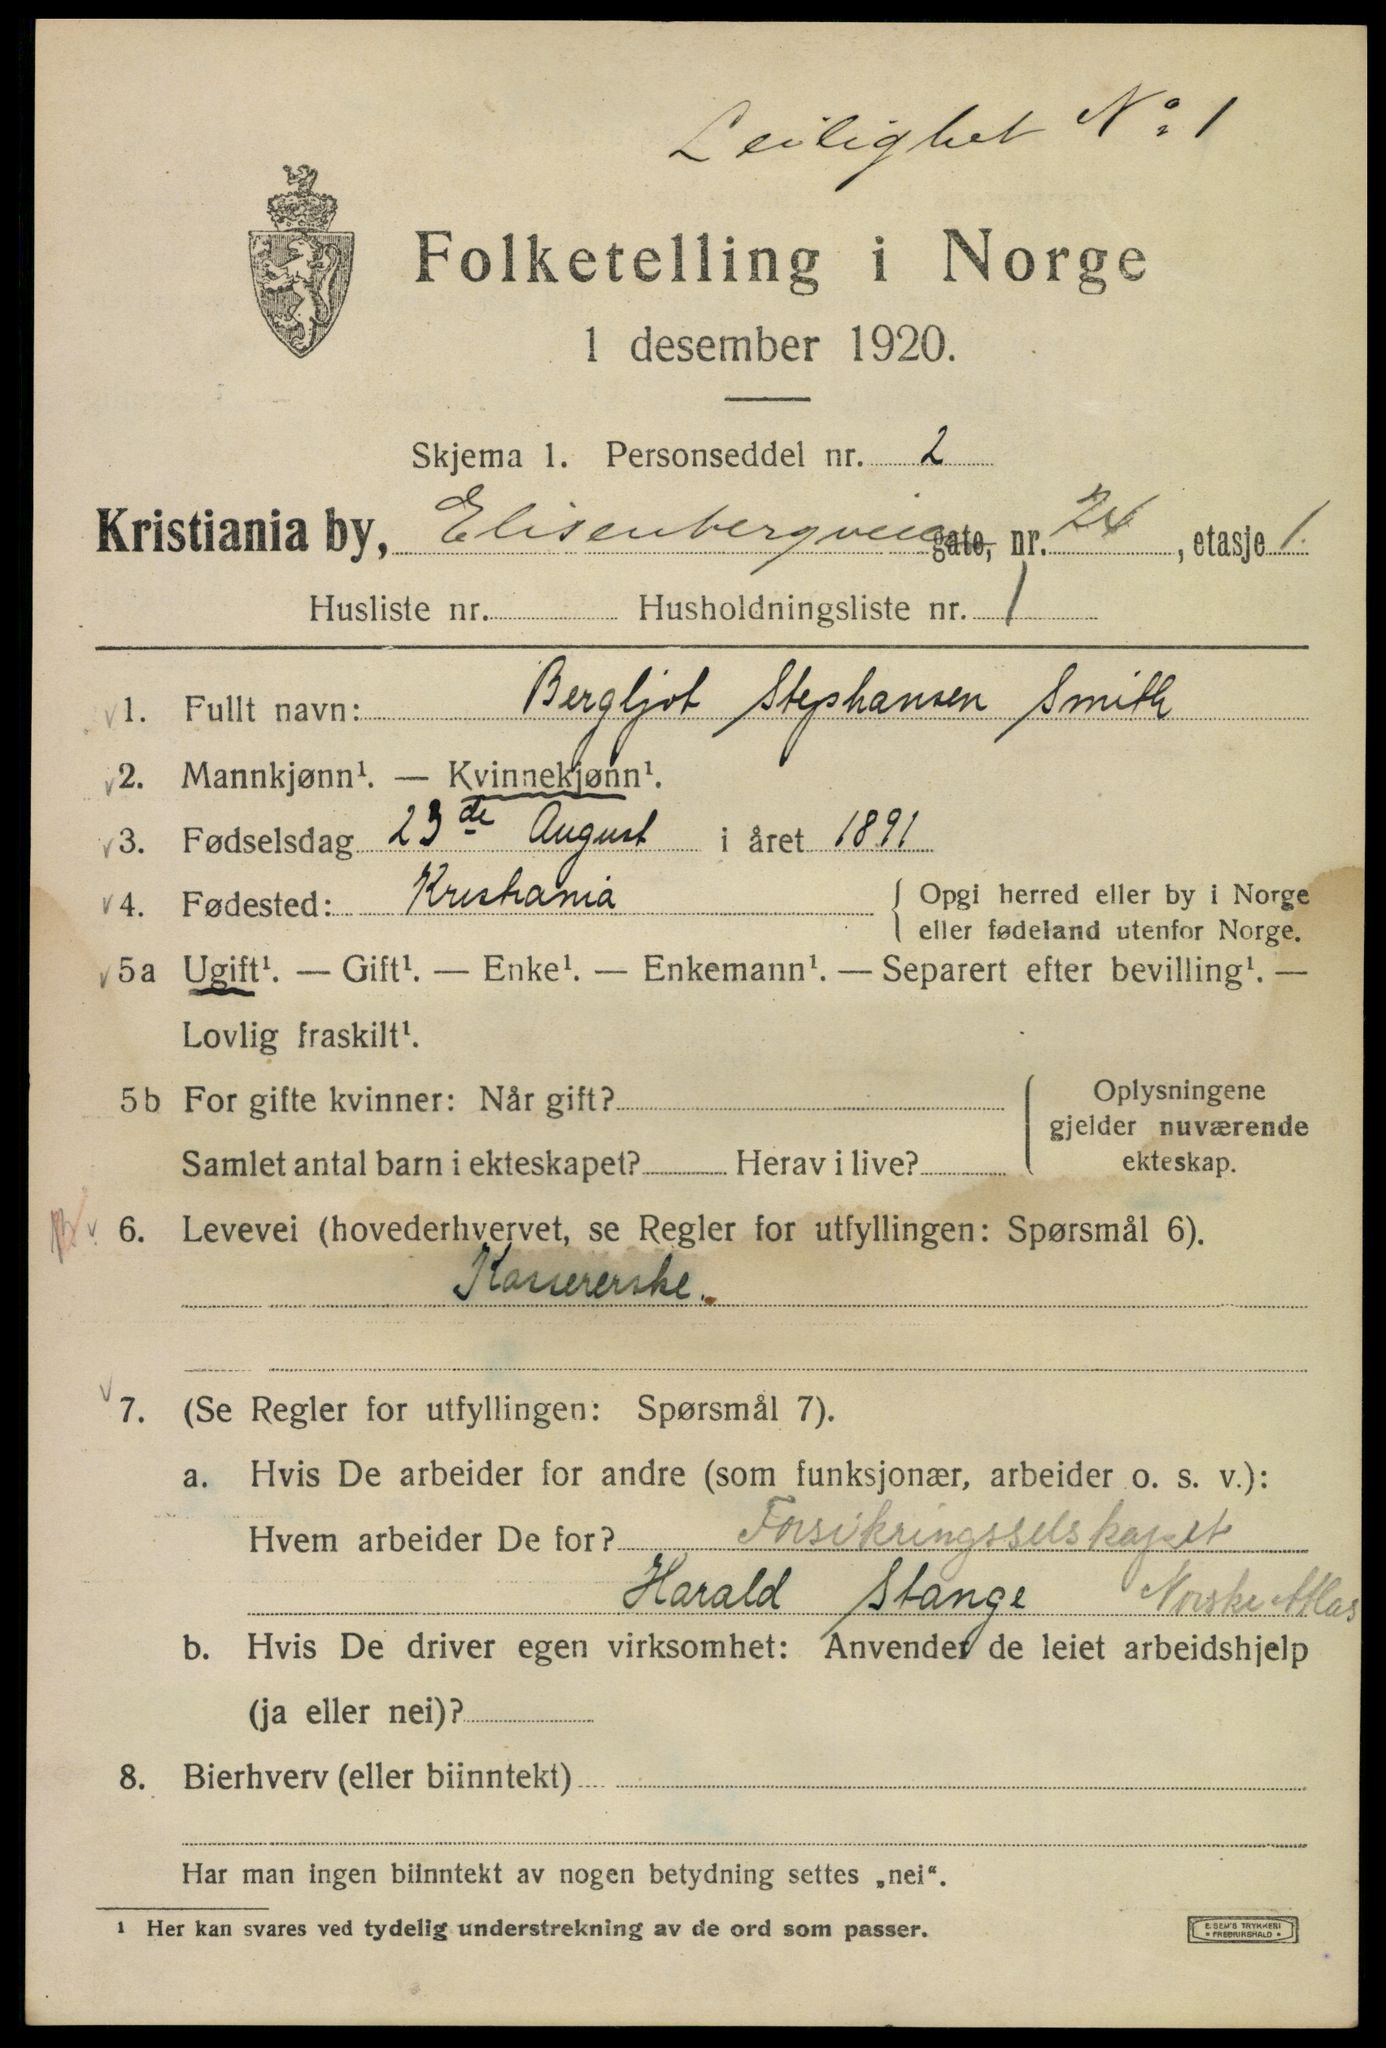 Leilighet No 1
Folketelling i Norge
1 desember 1920.
Skjema 1. Personseddel nr. 2
Kristiania by, Elisenbergveien gate, nr. 24, etasje 1.
Husliste nr. Husholdningsliste nr. 1
1. Fullt navn: Bergljot Stephansen Smith
2. Mannkjønn¹. — Kvinnekjønn¹.
3. Fødselsdag 23de August i året 1891
4. Fødested: Kristiania { Opgi herred eller by i Norge
eller fødeland utenfor Norge.
5a Ugift¹. — Gift¹. — Enke¹. — Enkemann¹. — Separert efter bevilling¹. —
Lovlig fraskilt¹.
5b For gifte kvinner: Når gift? { Oplysningene
gjelder nuværende
Samlet antal barn i ekteskapet? Herav i live? ekteskap.
6. Levevei (hovederhvervet, se Regler for utfyllingen: Spørsmål 6).
Kassererske.
7. (Se Regler for utfyllingen: Spørsmål 7).
a. Hvis De arbeider for andre (som funksjonær, arbeider o. s. v.):
Hvem arbeider De for? Forsikringsselskapet
Harald Stange Norske Atlas
b. Hvis De driver egen virksomhet: Anvender de leiet arbeidshjelp
(ja eller nei)?
8. Bierhverv (eller biinntekt)
Har man ingen biinntekt av nogen betydning settes „nei“.
¹ Her kan svares ved tydelig understrekning av de ord som passer.
E. SEM'S TRYKKERI
• FREDRIKSHALD •